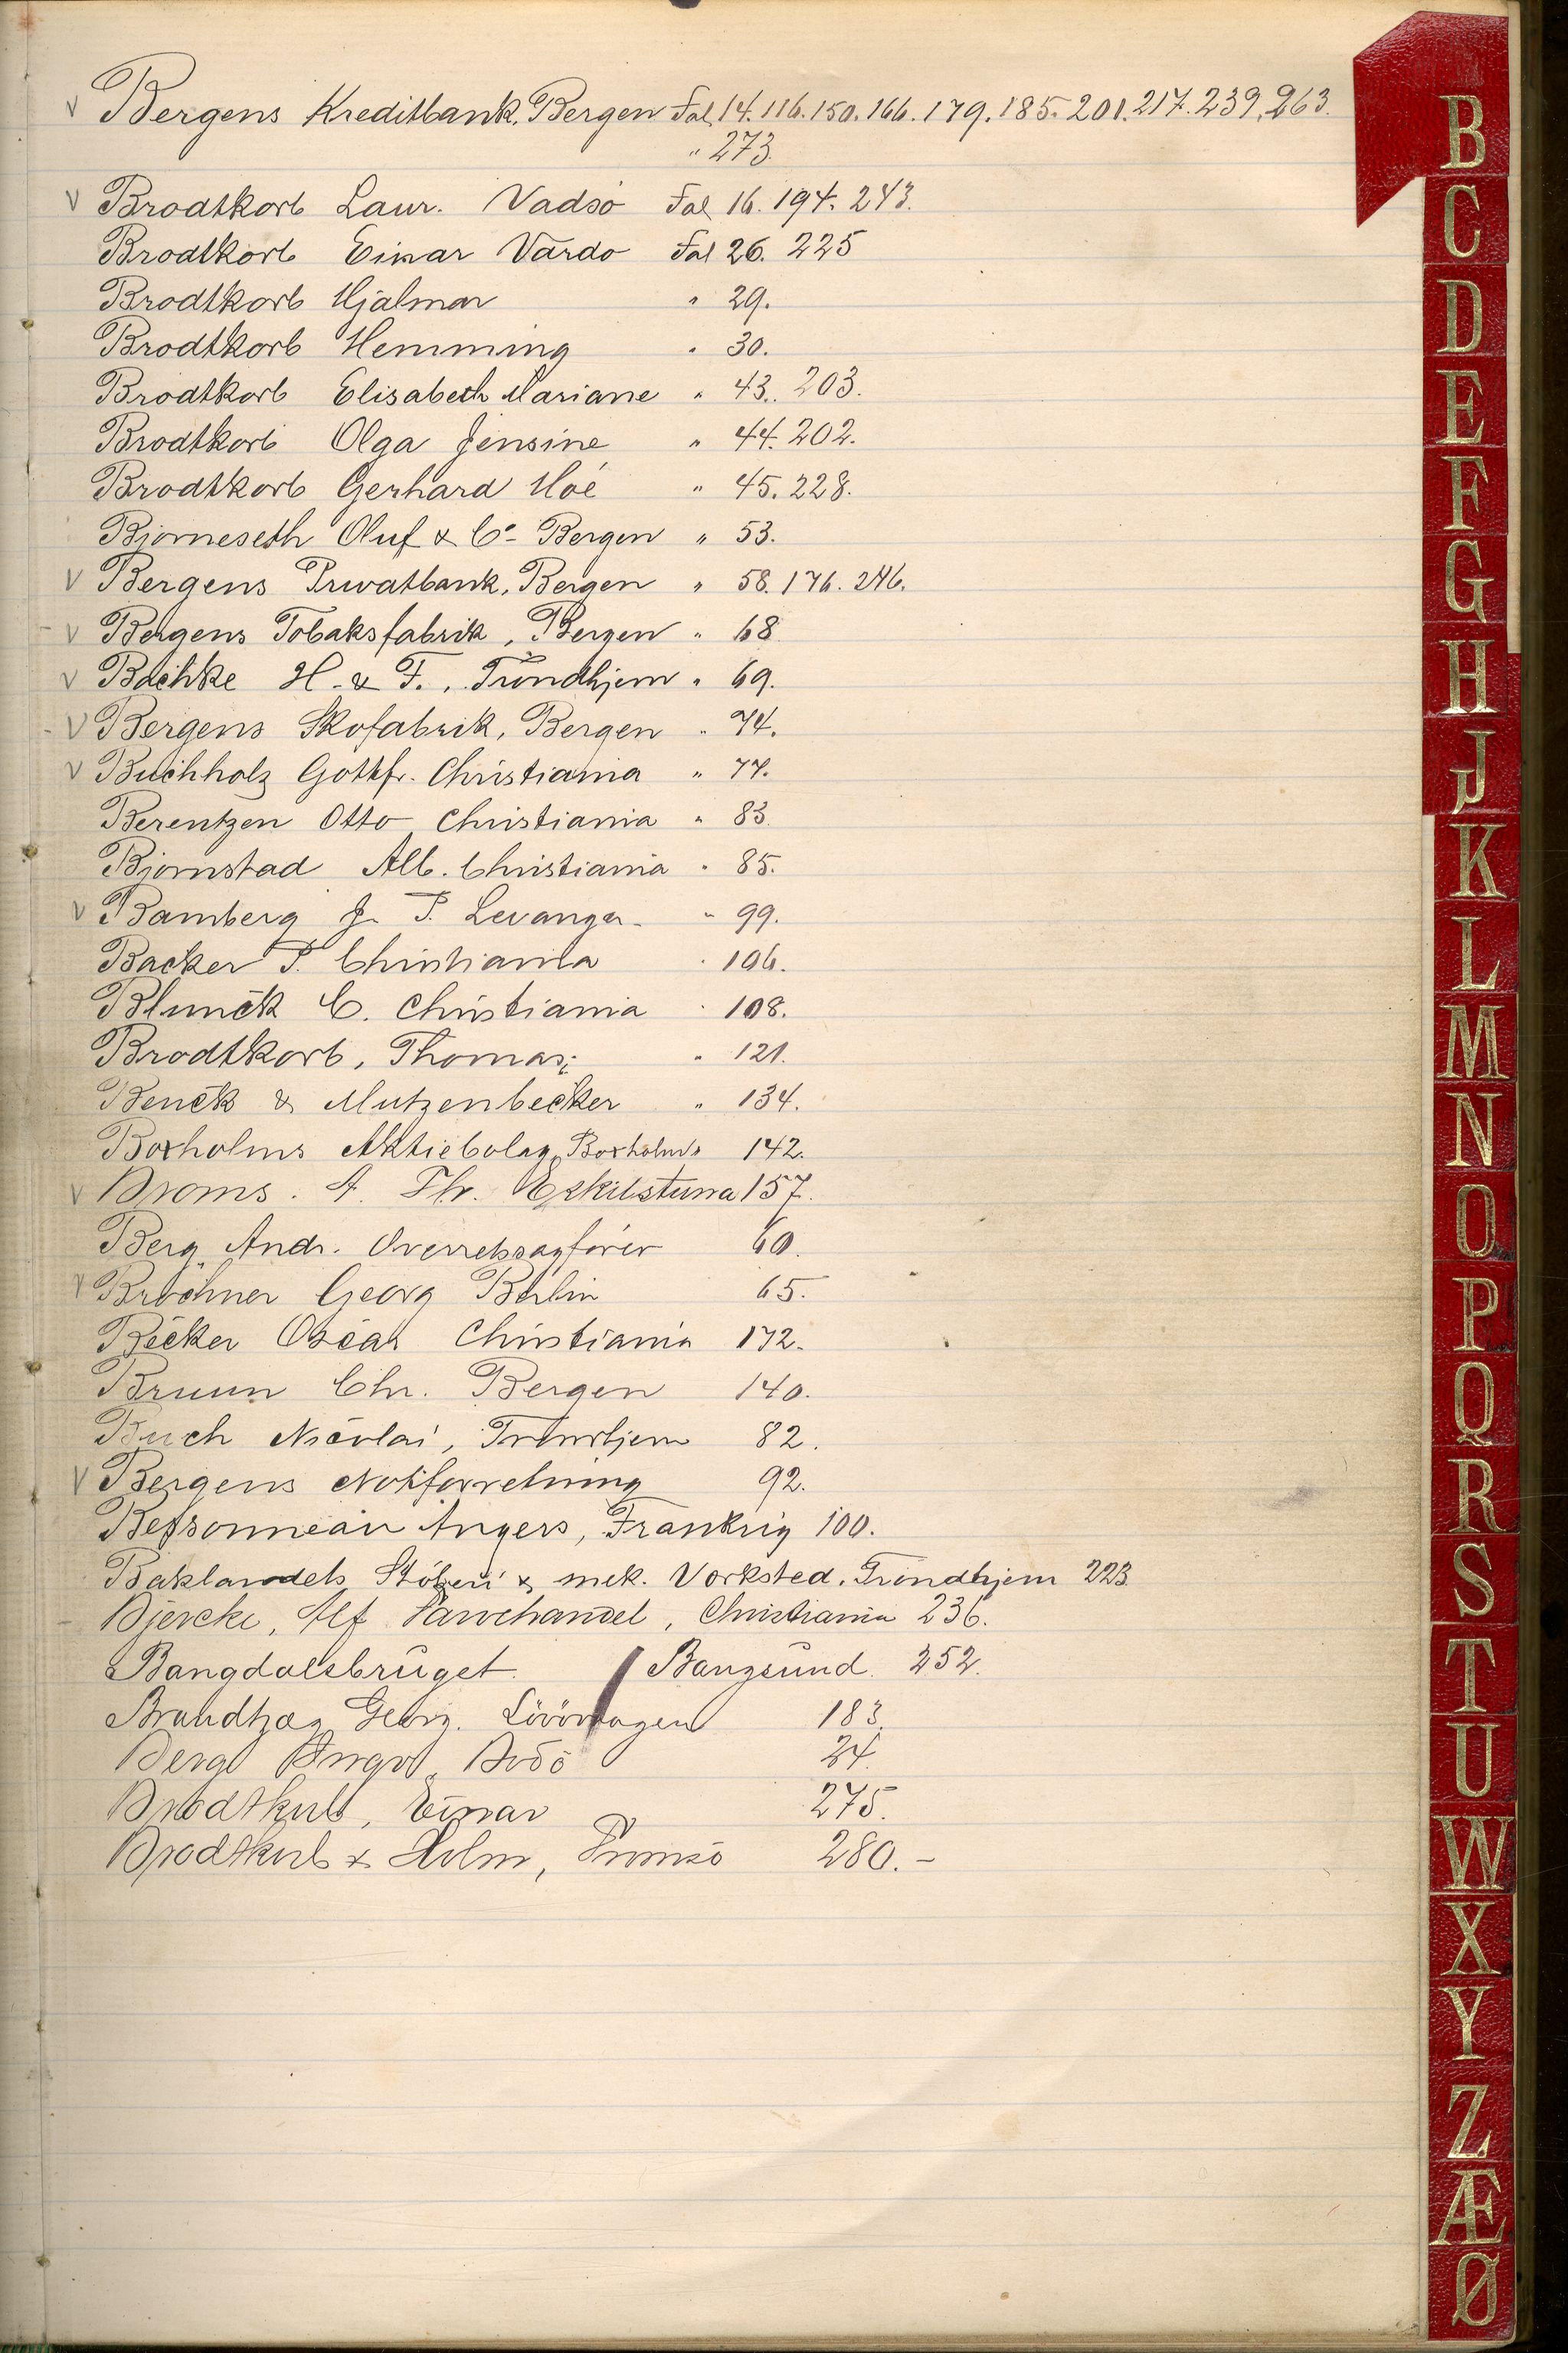 V Bergens Kreditbank, Bergen Fol. 14. 116. 150. 166. 179. 185. 201. 217. 239. 263.
" 273.
V Brodtkorb Laur. Vadsö Fol 16. 194. 243.
Brodtkorb Einar Vardö Fol 26. 225
Brodtkorb Hjalmar " 29.
Brodtkorb Hemming " 30.
Brodtkorb Elisabeth Mariane " 43. 203.
Brodtkorb Olga Jensine " 44. 202.
Brodtkorb Gerhard Hoé " 45. 228.
Bjorneseth Oluf & Co - Bergen " 53.
V Bergens Privatbank, Bergen " 58. 176. 246.
V Bergens Tobaksfabrik, Bergen " 68
V Bachke H. & F., Trondhjem " 69.
V Bergens Skofabrik, Bergen " 74.
V Buchholz Gottfr. Christiania " 77.
Berentzen Otto Christiania " 83
Bjornstad Alb. Christiania " 85.
V Bamberg J. P. Levanger - " 99.
Backer P. Christiania " 106.
Blunck C. Christiania " 108.
Brodtkorb, Thomas; " 121.
Benck & Mutzenbecker " 134.
Boxholms Aktiebolag, Boxholm " 142.
V Broms. A. Fr. Eskilstuna 157.
Berg, Andr. Overretssagförer 60.
V Bröchner Georg Berlin 65.
Becker Oscar Christiania 172.
Bruun Chr. Bergen 140.
Buch Nicolai, Trondhjem 82.
V Bergens Notforretning 92.
Bessonneau Angers, Frankrig 100.
Baklandets Stöberi & mek. Værksted, Trondhjem 223
Bjercke, Alf Farvehandel, Christiania 236.
Bangdalsbruget. Bangsund. 252.
Brandtzæg Georg. 183.
Berg Bodö 24.
Brodtkorb, Einar 275.
Brodtkorb & Holm, Tromsö 280. -
B
C
D
E
F
G
H
J
K
L
M
N
O
P
Q
R
S
T
U
W
X
Y
Z
Æ
Ø